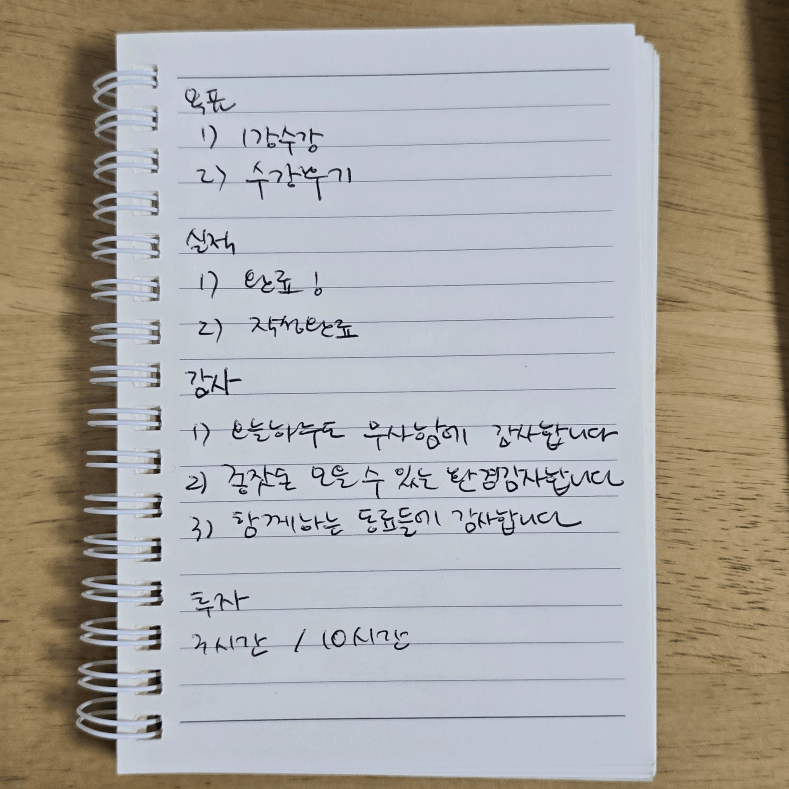 목표
1) 1강수강
2) 수강후기
실적
1) 완료!
2) 작성완료
감사
1) 오늘하루도 무사함에 감사합니다
2) 종잣돈 모을 수 있는 환경감사합니다
3) 함께하는 동료들에 감사합니다
투자
3시간 / 10시간